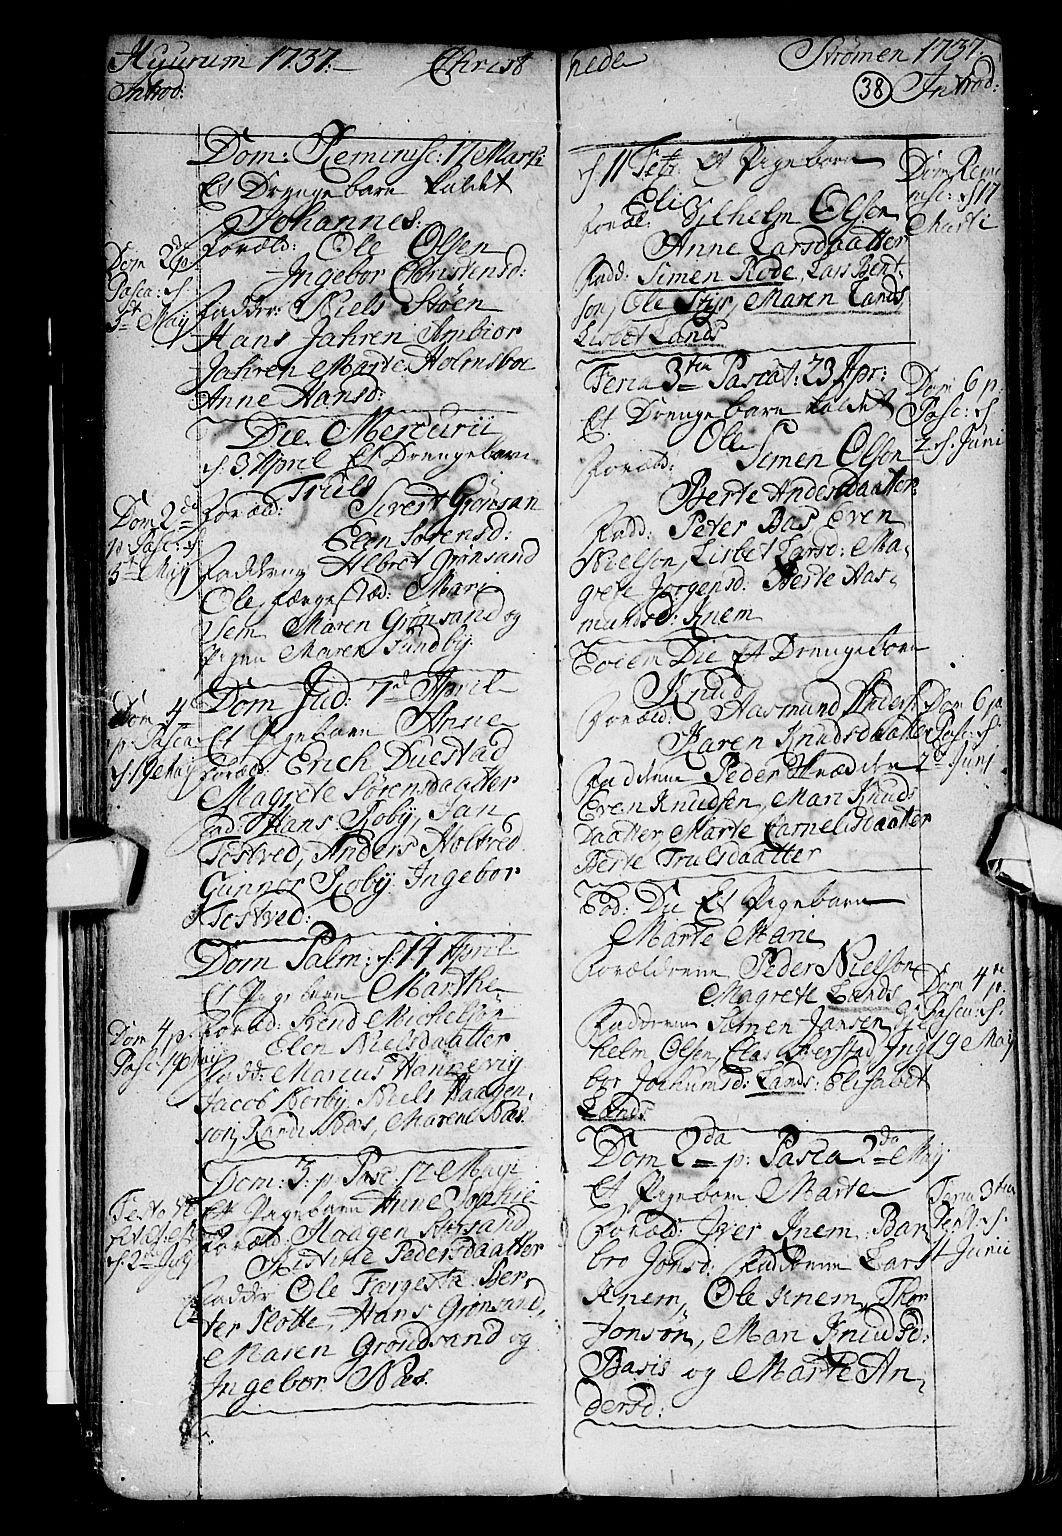 Huurum 1737. Christ
Introd:
Dom: Reminisc: 17 Marti
Et Drengebarn kaldet
Johannes:
Foræld: Ole Olsen
Ingebor Christensd:
Faddr: Niels Støen
Hans Jahren Ambior
Jahren Marte Holmsboe
Anne Hansd:
Dom 2 p
Pasca: s.
5t May
Die Mercurii
s. 3 April Et Drengebarn
Truls
Foræld: Sivert Grønsan
Elen Sørensd:
Fadderne Albret Grønsand
Ole Færgestad: Mari
Sem Maren Grønsand og
Pigen Maren Sundby.
Dom 2de
p Pasc: s.
5t May
Dom Jud: 7de April
Et Pigebarn Anne
Foræld: Erich Duestad
Magrete Sørensdaatter
Fad: Hans Roby, Jan
Tostved, Anders Holtved
Gunnor Roby Ingebor
Tostved:
Dom 4de
p. Pasca
s. 19de May
Dom Palm: s. 14 April
Et Pigebarn Marthe
Foræld: Svend Michelsøn
Elen Nielsdaatter
Fadd: Marcus Hannevig
Jacob Borby Niels Haagen
søn, Randi Næs, Maren Næs.
Dom 4 p.
Pasc: 19 May
Dom: 3. p. Pasc. 12 Mayi
Et Pigebarn Anne Sophie
Foræld. Haagen
Kistine Pedersdaatter
Fadder Ole Fargesta Per
ter Slotte, Hans Grønsand,
Maren Grøndsand og
Ingebor Næs.
s. 2de July
nede Strømen 1737.
38 Introd:
s. 11 Et Pigebarn
Eli
Foræl: Vilhelm Olsen
Anne Larsdaatter
Fadd: Simen Rode, Lars Bent-
søn, Ole Styr, Maren Lands
Lisbet Lands
Dom Remi
nisc: s. 17
Marti
Feria 3tia Pascat: 23 Apr:
Et Drengebarn kaldet
Ole
Foræld: Simen Olsøn
Berte Andersdaatter
Fadd: Peder Bas Even
Nielsøn, Lisbet Larsd: Ma-
grete Jørgensd. Berte Aas-
mundsd: Knem
Dom 6 p.
Pasc: s.
2 s. Juni
Eodem Die Et Drengebarn
Knud
Foræld: Aasmund Anders:
Karen Knudsdaatter
Fadderne Peder Skrædder
Even Knudsen, Mari Knuds
Daatter Marte Carnelisdaatter
Berte Trulsdaatter
Dom 6 p
Pasc: s
2de Juni
Eod: Die Et Pigebarn
Marte Marie
Forældrene Peder Nielsøn
Magrete Lands
Fadderne Simen Jansen Vil
helm Olsen, Clas Sverstad Inge
bor Jochumsd: Lands: Elisabet
Lands
Dom 4de
p. Pasca: s.
19de May
Dom 2da p: Pasca 2da May
Et Pigebarn Marte
Foræld: Iver Knem Bar
bro Jonsd: Fadderne Lars
Knem, Ole Knem, Thor
Jonsøn, Mari Knudsd:
Basis og Marte An
dersd:
Feria 3tia
Pent: s.
11 Junii